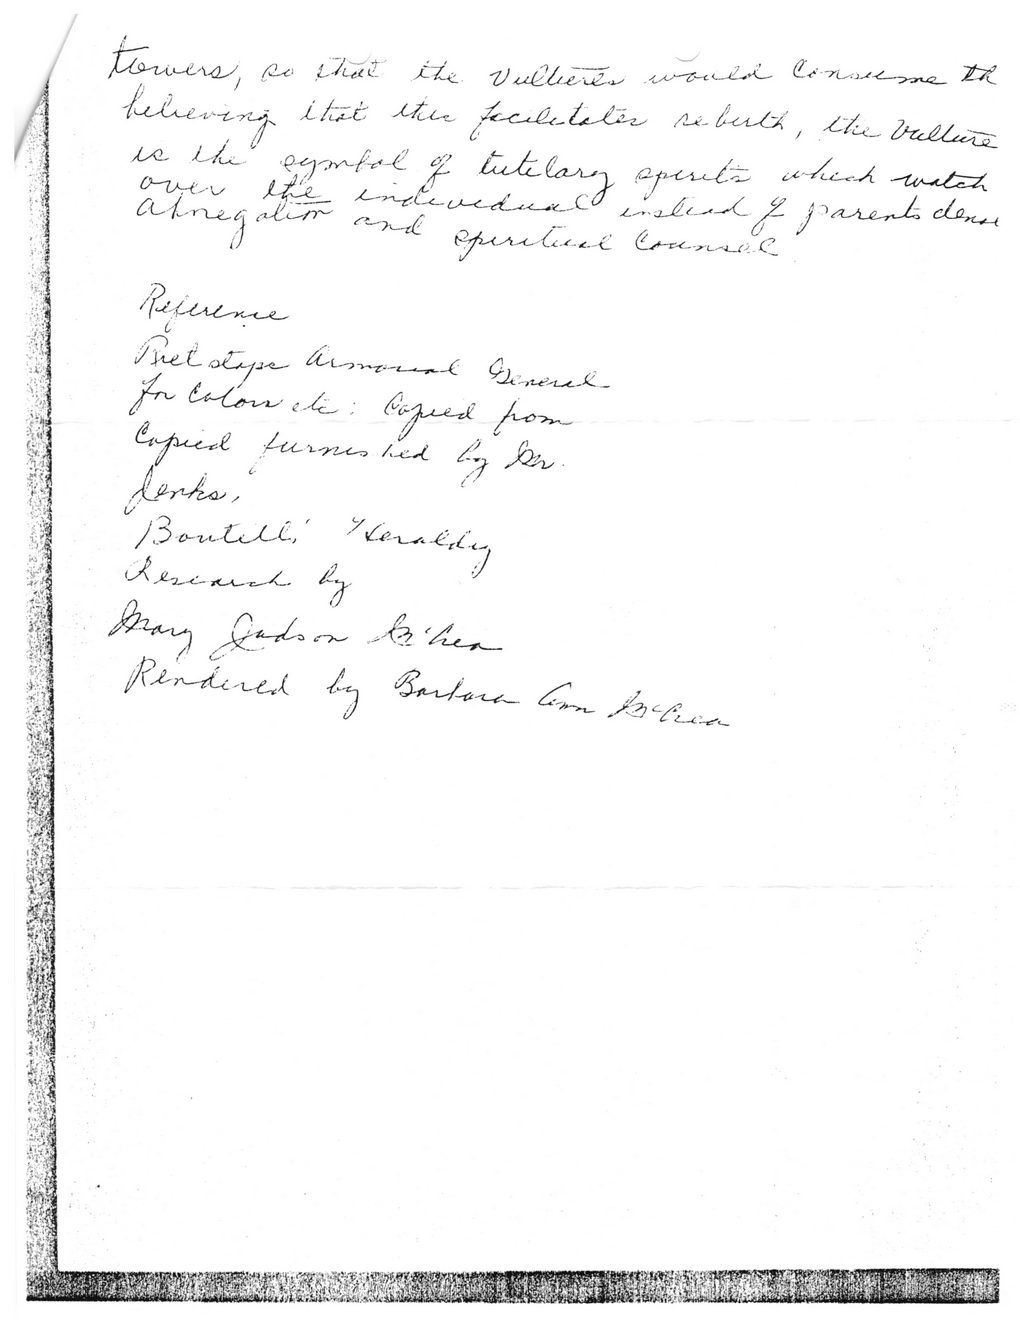 towers, so that the Vultures would Consume th
believing that this facilitates rebirth, the Vulture
is the symbol of tutelary spirits which watch
over the individual instead of parents dense
Abnegation and spiritual Counsel
Reference
Rietstaps Armorial General
for Colors etc: Copied from
Copied furnished by Mr.
Jenks,
Boutell's Heraldry
Research by
Mary Judson McCrea
Rendered by Barbara Ann McCrea